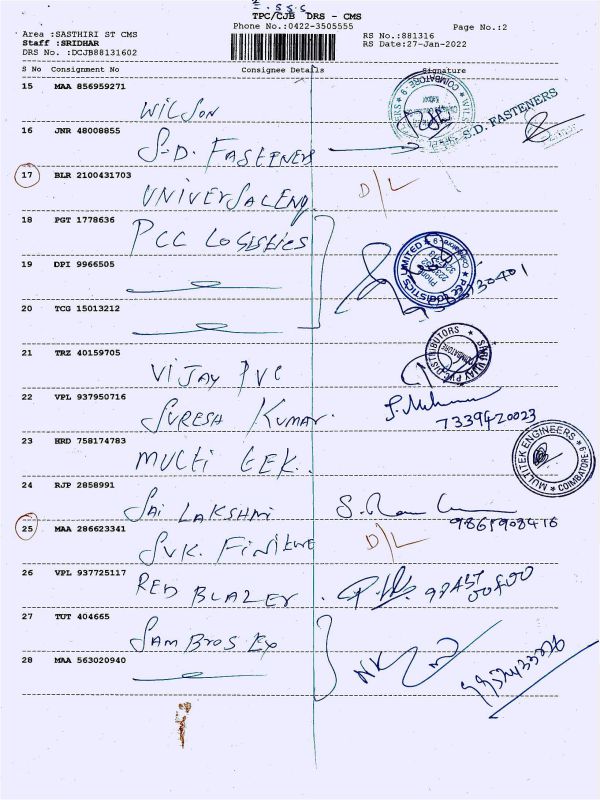 TPC/CJB DRS - CMS
Phone No.:0422-3505555 Page No.:2
Area :SASTHIRI ST CMS RS No.:881316
Staff :SRIDHAR RS Date:27-Jan-2022
DRS No. :DCJB88131602
S No Consignment No Consignee Details Signature
15 MAA 856959271
WILSON
16 JNR 48008855 S.D. FASTENERS
S.D. FASTENERS
17 BLR 2100431703
UNIVERSAL ENQ D/L
18 PGT 1778636
PCC LOGISTICS
19 DPI 9966505
20 TCG 15013212
21 TRZ 40159705
VIJAY PVC
22 VPL 937950716
SURESH KUMAR.
7339420023
23 HRD 758174783
MULTI TEK.
MULTITEK ENGINEERS COIMBATORE
24 RJP 2858991
SAI LAKSHMI
25 MAA 286623341
D/L
26 VPL 937725117
RED BLAZER
27 TUT 404665
SAM BROS EX
28 MAA 563020940
NK